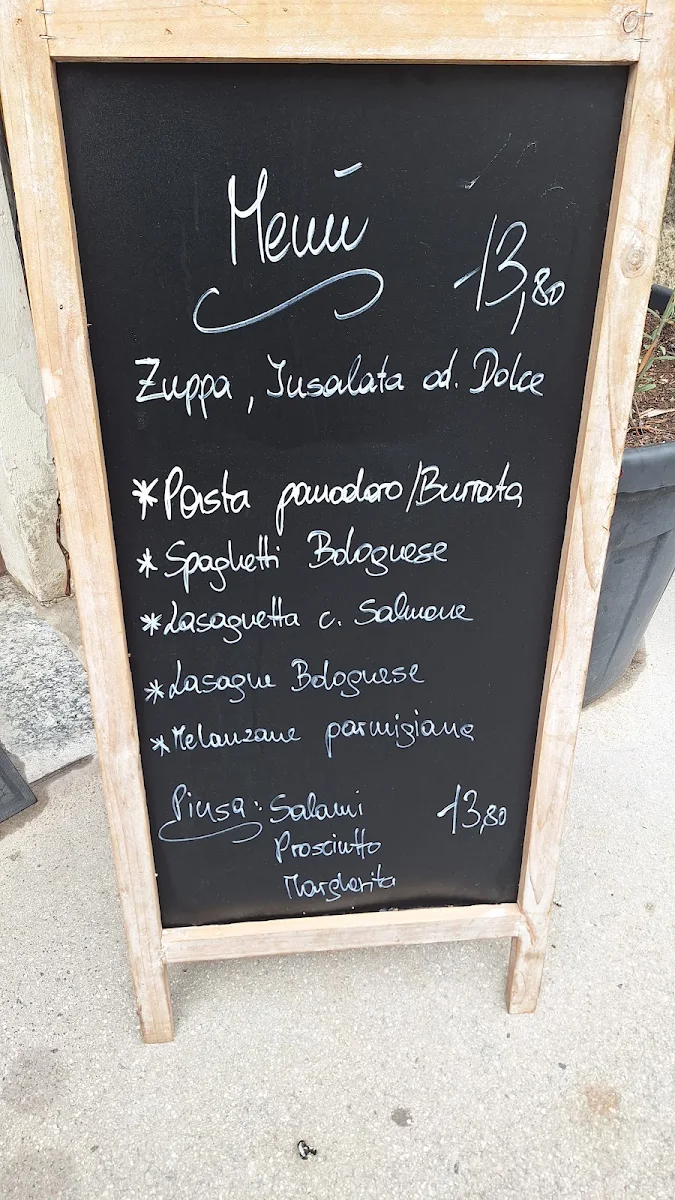 Menü
13,80
Zuppa, Insalata od. Dolce
*Pasta pomodoro/Burrata
*Spaghetti Bolognese
*Lasagnetta c. Salmone
*Lasagne Bolognese
*Melanzane parmigiana
Pinsa: Salami 13,80
Prosciutto
Margherita